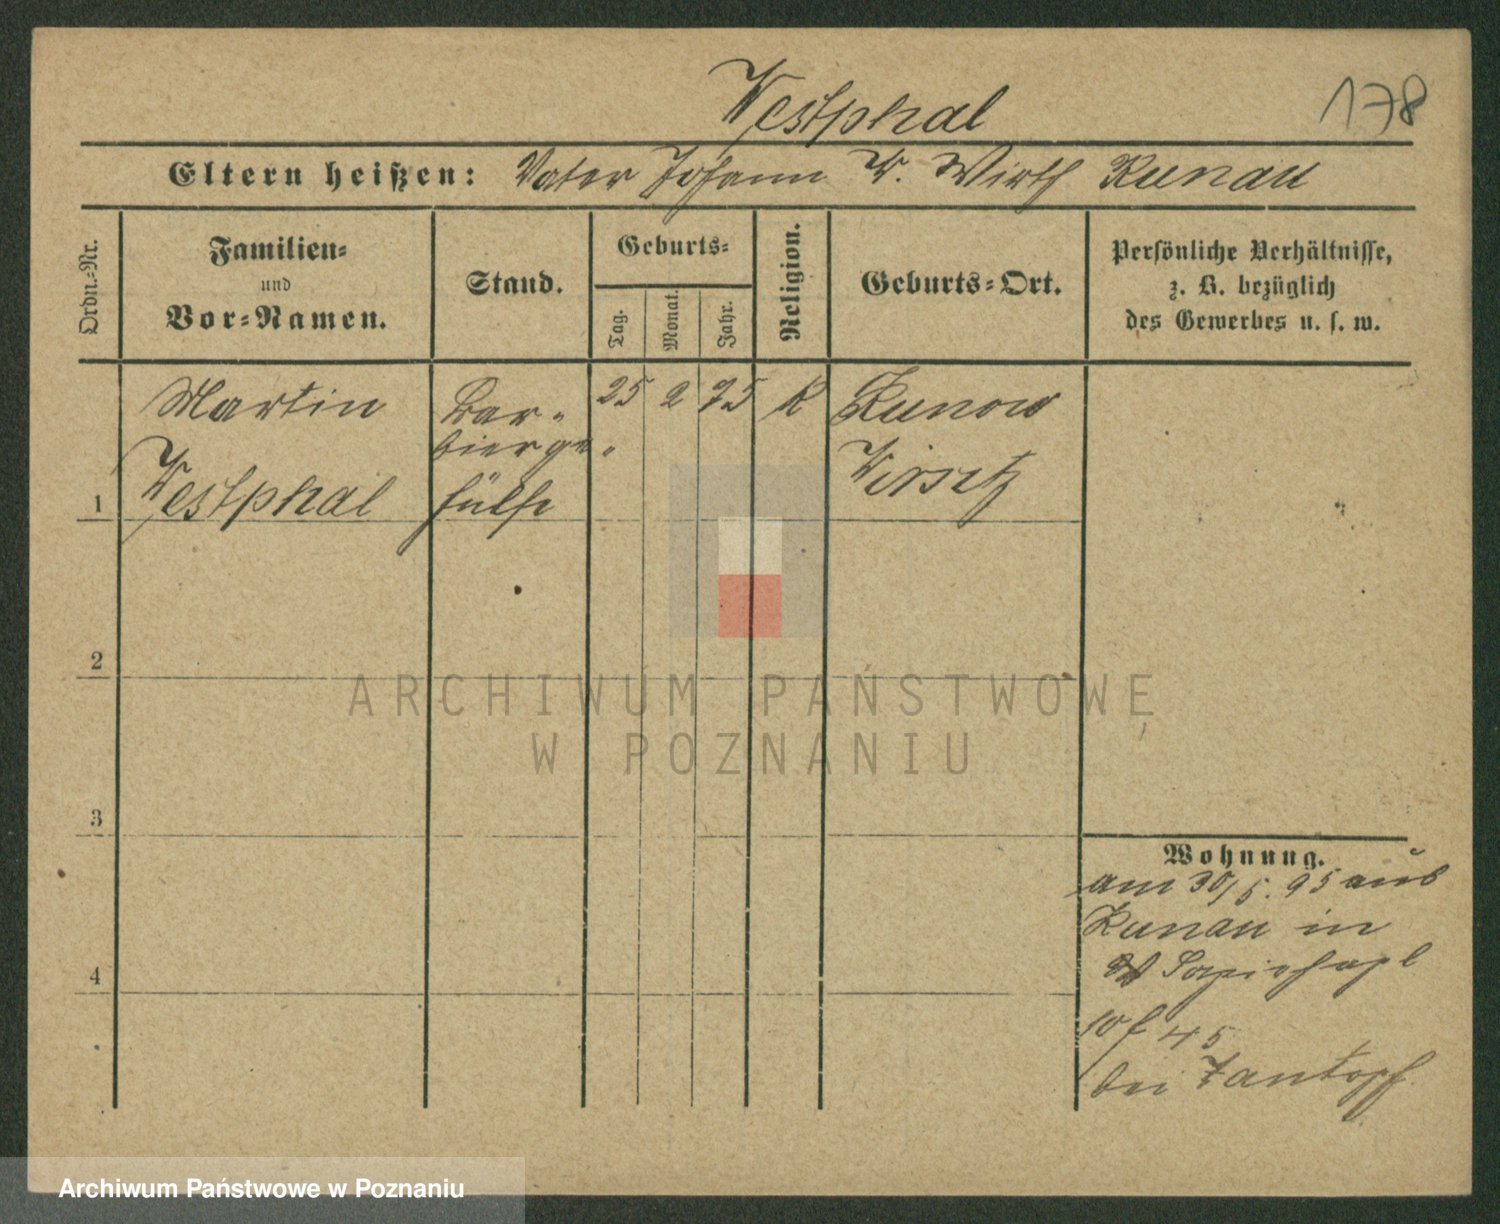 Westphal
178
Eltern heißen: Vater Johann W. Wirth Kunau
Ordn.-Nr.
Familien-
und
Vor-Namen.
Stand.
Geburts-
Tag.
Monat.
Jahr.
Religion.
Geburts-Ort.
Persönliche Verhältnisse,
z. B. bezüglich
des Gewerbes u. s. w.
1
Martin
Westphal
Bar-
bierge-
hülfe
25 2 75 K
Kunow
Wirsitz
2
3
4
Wohnung.
am 30/5. 95 aus
Kunau in
Sapiehapl
10 45
bei
ARCHIWUM PAŃSTWOWE
W POZNANIU
Archiwum Państwowe w Poznaniu